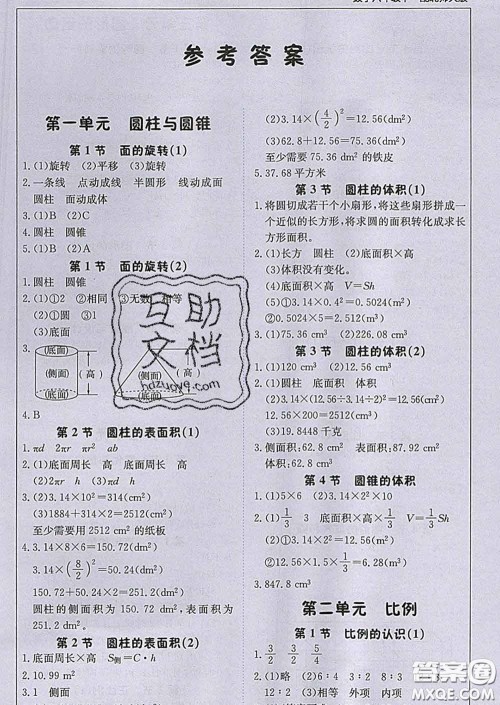 参考答案
第一单元 圆柱与圆锥
第1节 面的旋转(1)
1.(1)旋转 (2)平移 (3)旋转
2.一条线 点动成线 半圆形 线动成面
圆柱 面动成体
3.(1)B (2)C
4.圆柱 圆锥
5.(1)B (2)A
第1节 面的旋转(2)
1.圆柱 圆锥
2.(1)①2 ②相同 ③无数 相等
(2)①圆 ③1
(3)底面
3.
(底面)
(侧面)
(高)
(底面)
(高)
(底面)
4.B
第2节 圆柱的表面积(1)
1.πd 2πr πr² ab
2.(1)底面周长 高 底面周长 高
(2)2πr h (3)πd h
3.(2)3.14×10²=314(cm²)
(3)1884+314×2=2512(cm²)
至少需要用 2512 cm² 的纸板
4.3.14×8×6=150.72(dm²)
3.14×(8/2)²=50.24(dm²)
150.72+50.24=200.96(dm²)
圆柱的侧面积为 150.72 dm²,表面积为
第2节 圆柱的表面积(2)
1.底面周长×高 S侧=C·h
2.10.99 m²
3.1 侧面
(2)3.14×(4/2)²=12.56(dm²)
(3)62.8+12.56=75.36(dm²)
至少需要 75.36 dm² 的铁皮
5.37.68 平方米
第3节 圆柱的体积(1)
1.将圆切成若干个小扇形,将这些扇形拼成一
个近似的长方形,将求圆的面积转化成求长
方形面积。
2.(1)长方 圆柱 (2)底面积×高
(3)体积没有变化。
3.(1)底面积×高 V=Sh
(2)①3.14×0.4²=0.5024(m²)
②0.5024×5=2.512(m³)
4.(1)75.36 cm³ (2)226.08 cm³
第3节 圆柱的体积(2)
1.(1)120 cm³ (2)15 cm
2.(1)圆柱 底面积 体积
12.56×200=2512(cm³)
(3)18.9499 千克
3.侧面积:62.8 cm² 表面积:87.92 cm²
体积:62.8 cm³
第4节 圆锥的体积
1.(1)5×6 (2)3.14×2²×10
2.(1)1/3 3 底面积×高 V=1/3Sh
(2)①3.14×2²=12.56(cm²)
②12.56×1.5×1/3=6.28(cm³)
3.847.8 cm³
第二单元 比例
第1节 比例的认识(1)
2.(1)略 (2)6:2 8:3
12:2 (3)相等 外项 内项
互助
文档
hazuowe9.com
答案圈
MXQE.COM